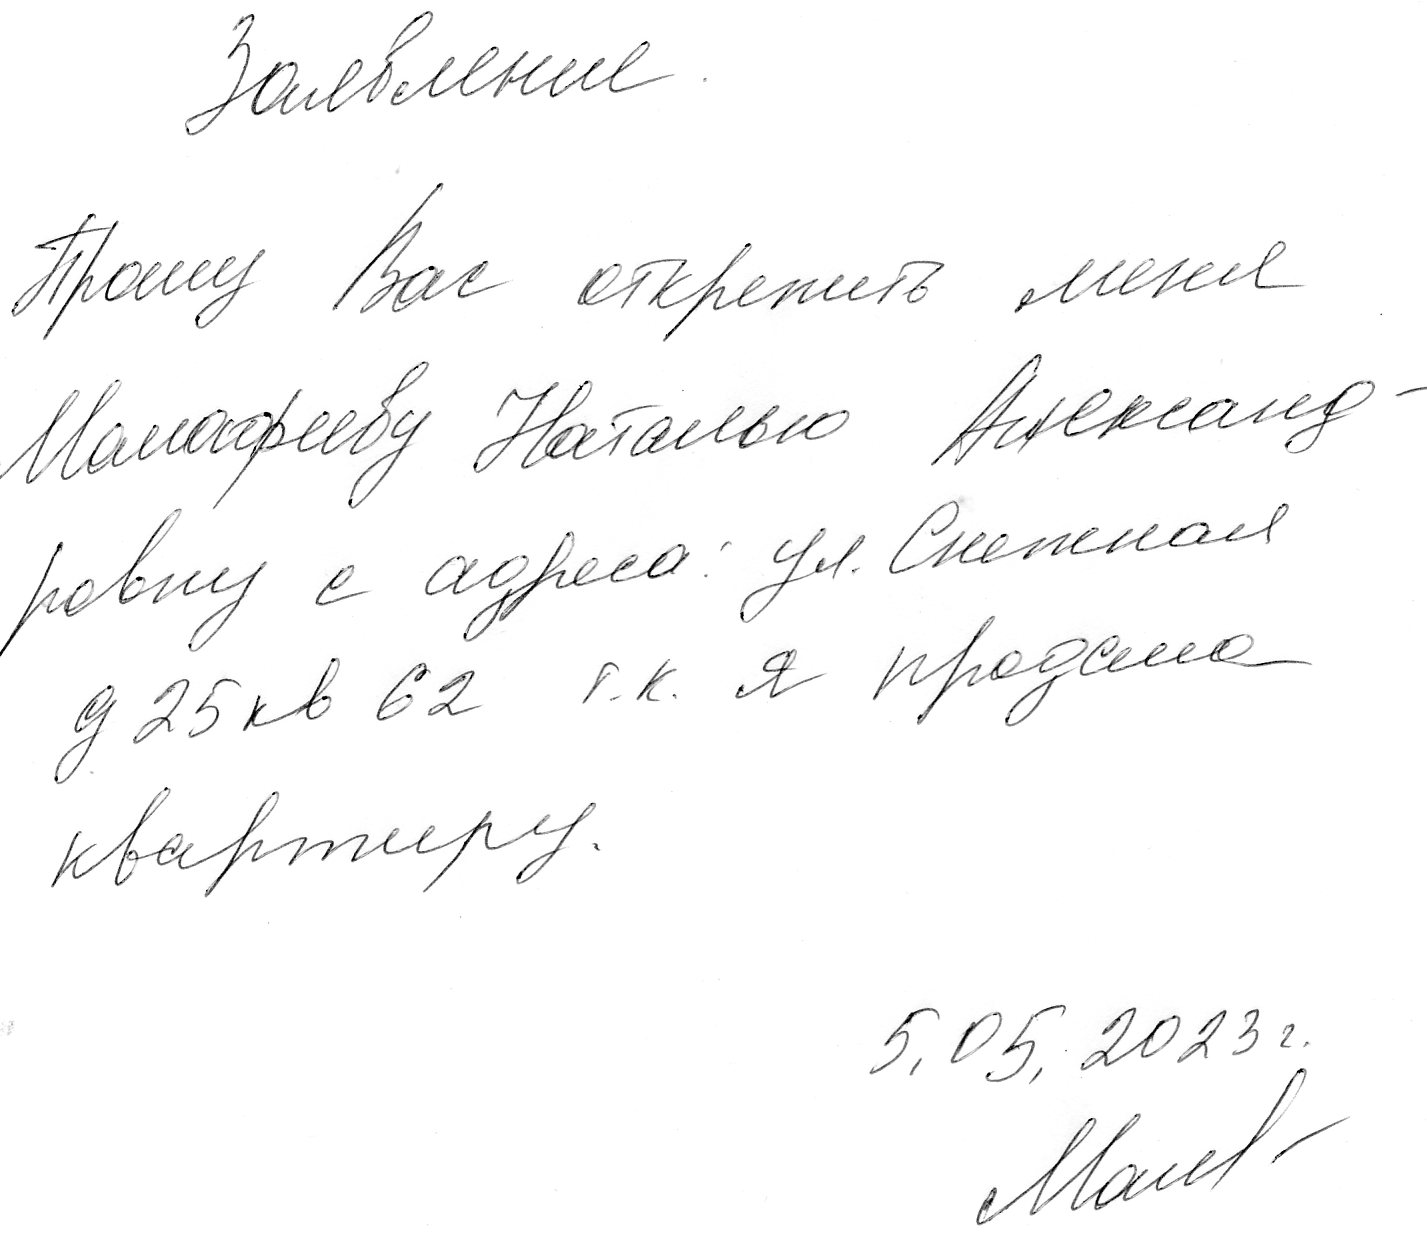 Заявление.
Прошу Вас открепить меня
Малафееву Наталью Александ-
ровну с адреса: ул. Снежная
д 25 кв 62 т.к. я продала
квартиру.
5.05.2023 г.